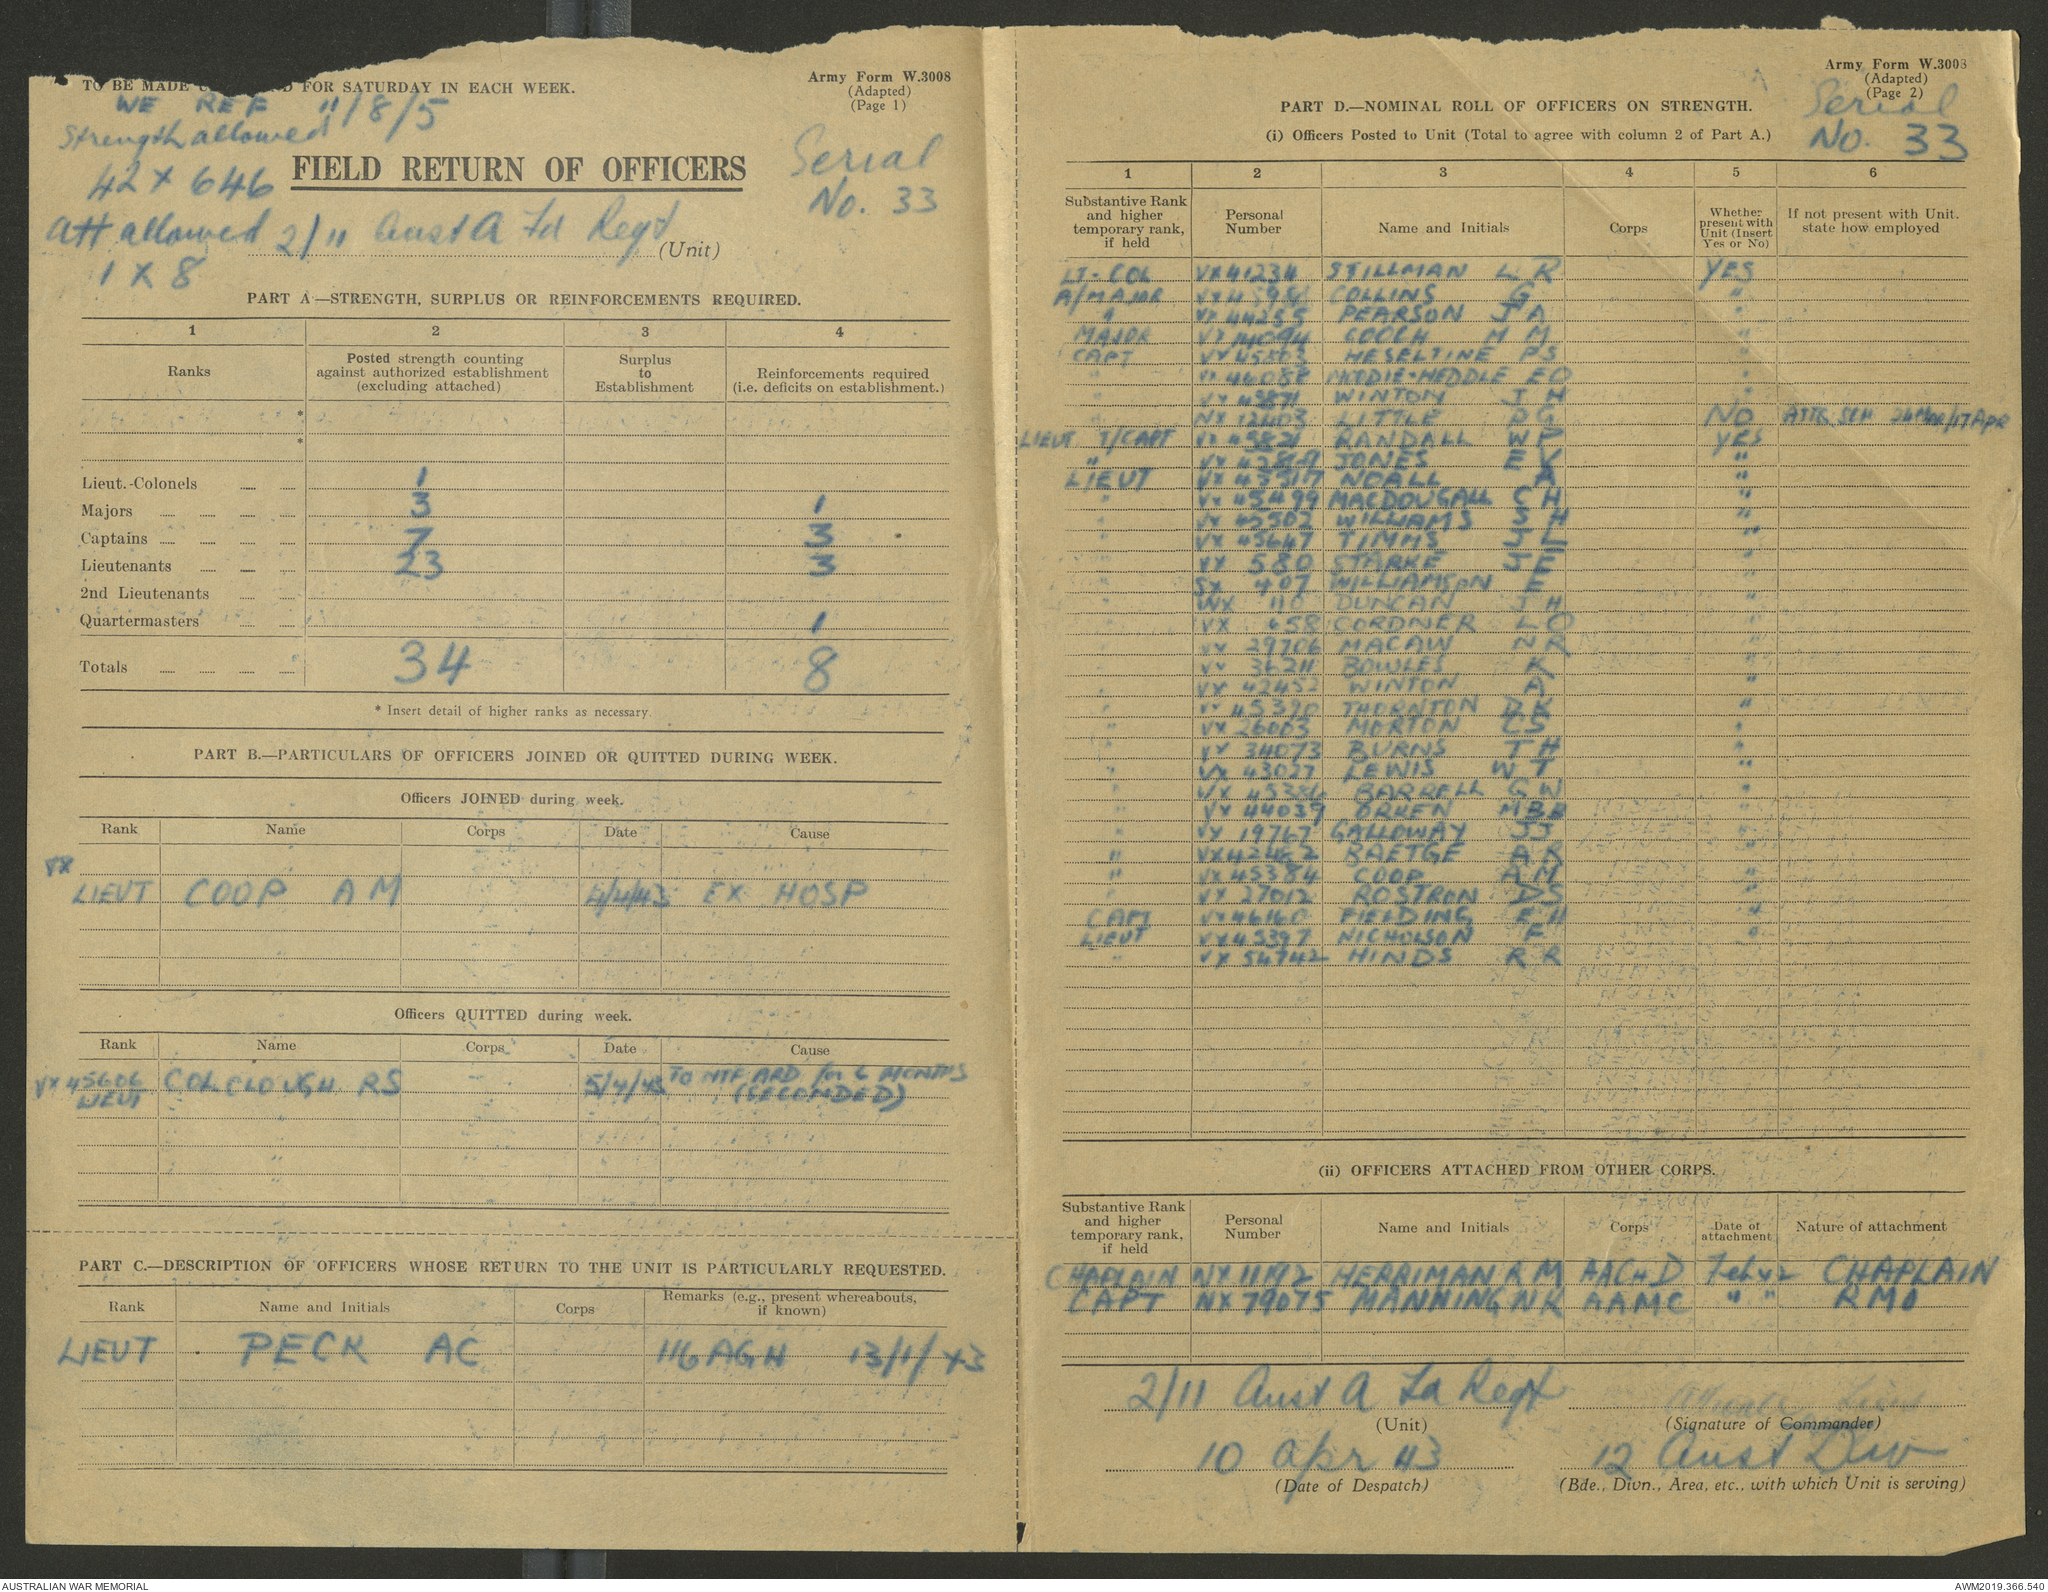 TO BE MADE U D FOR SATURDAY IN EACH WEEK.
Army Form W.3008
(Adapted)
(Page 1)
WE REF 11/8/5
Strength allowed
42 x 646
Att allowed
1 x 8
FIELD RETURN OF OFFICERS
Serial
No. 33
2/11 Aust A Fd Regt (Unit)
PART A—STRENGTH, SURPLUS OR REINFORCEMENTS REQUIRED.
1 2 3 4
Ranks
Posted strength counting against authorized establishment (excluding attached)
Surplus to Establishment
Reinforcements required (i.e. deficits on establishment.)
*
*
Lieut.-Colonels 1
Majors 3 1
Captains 7 3
Lieutenants 23 3
2nd Lieutenants
Quartermasters 1
Totals 34 8
* Insert detail of higher ranks as necessary.
PART B.—PARTICULARS OF OFFICERS JOINED OR QUITTED DURING WEEK.
Officers JOINED during week.
Rank Name Corps Date Cause
VX
LIEUT COOP A M 4/4/43 EX HOSP
Officers QUITTED during week.
Rank Name Corps Date Cause
VX 45606 LIEUT COLCLOUGH RS 5/4/43 TO NTF ARD for 6 MONTHS
(SECONDED)
PART C.—DESCRIPTION OF OFFICERS WHOSE RETURN TO THE UNIT IS PARTICULARLY REQUESTED.
Rank Name and Initials Corps Remarks (e.g., present whereabouts, if known)
LIEUT PECK AC 116 AGH 13/1/43
Army Form W.3008
(Adapted)
(Page 2)
Serial
No. 33
PART D.—NOMINAL ROLL OF OFFICERS ON STRENGTH.
(i) Officers Posted to Unit (Total to agree with column 2 of Part A.)
1 2 3 4 5 6
Substantive Rank and higher temporary rank, if held
Personal Number
Name and Initials
Corps
Whether present with Unit (Insert Yes or No)
If not present with Unit. state how employed
LT-COL VX 41234 STILLMAN L R YES
A/MAJOR COLLINS G "
" PEARSON J A "
MAJOR GOOCH H M "
CAPT HESELTINE PS "
" MOODIE-HEDDLE EO "
" WINTON J H "
" NX 12403 LITTLE RG NO ATTD SCH 24 Mar/17 Apr
LIEUT T/CAPT RANDALL W P YES
" JONES E V "
LIEUT NOALL A "
" VX 45499 MACDOUGALL C H "
" VX 45502 WILLIAMS S H "
" VX 45647 TIMMS J L "
" VX 580 STARKE J E "
" SX 407 WILLIAMSON E "
" WX 110 DUNCAN J H "
" VX 658 CORDNER L O "
" VX 29706 MACAW N R "
" VX 36211 BOWLES K "
" VX 42452 WINTON A "
" VX 45390 THORNTON D K "
" VX 26003 MORTON C S "
" VX 34073 BURNS T H "
" VX 43027 LEWIS W T "
" VX 45386 BARRELL G W "
" VX 44039 ORREN M B B "
" VX 19767 GALLOWAY JJ "
" VX 42462 BAETGE A R "
" VX 45384 COOP A M "
" VX 27012 ROSTRON D S "
CAPT VX 46160 FIELDING E H "
LIEUT VX 45397 NICHOLSON F "
" VX 54742 HINDS R R
(ii) OFFICERS ATTACHED FROM OTHER CORPS.
Substantive Rank and higher temporary rank, if held
Personal Number
Name and Initials
Corps
Date of attachment
Nature of attachment
CHAPLAIN HERRIMAN R M AACHD Feb 42 CHAPLAIN
CAPT NX 79075 MANNING NK AAMC " " RMO
2/11 Aust A Fd Regt
(Unit)
(Signature of Commander)
10 Apr 43
(Date of Despatch)
12 Aust Div
(Bde., Divn., Area, etc., with which Unit is serving)
AUSTRALIAN WAR MEMORIAL
AWM2019.366.540